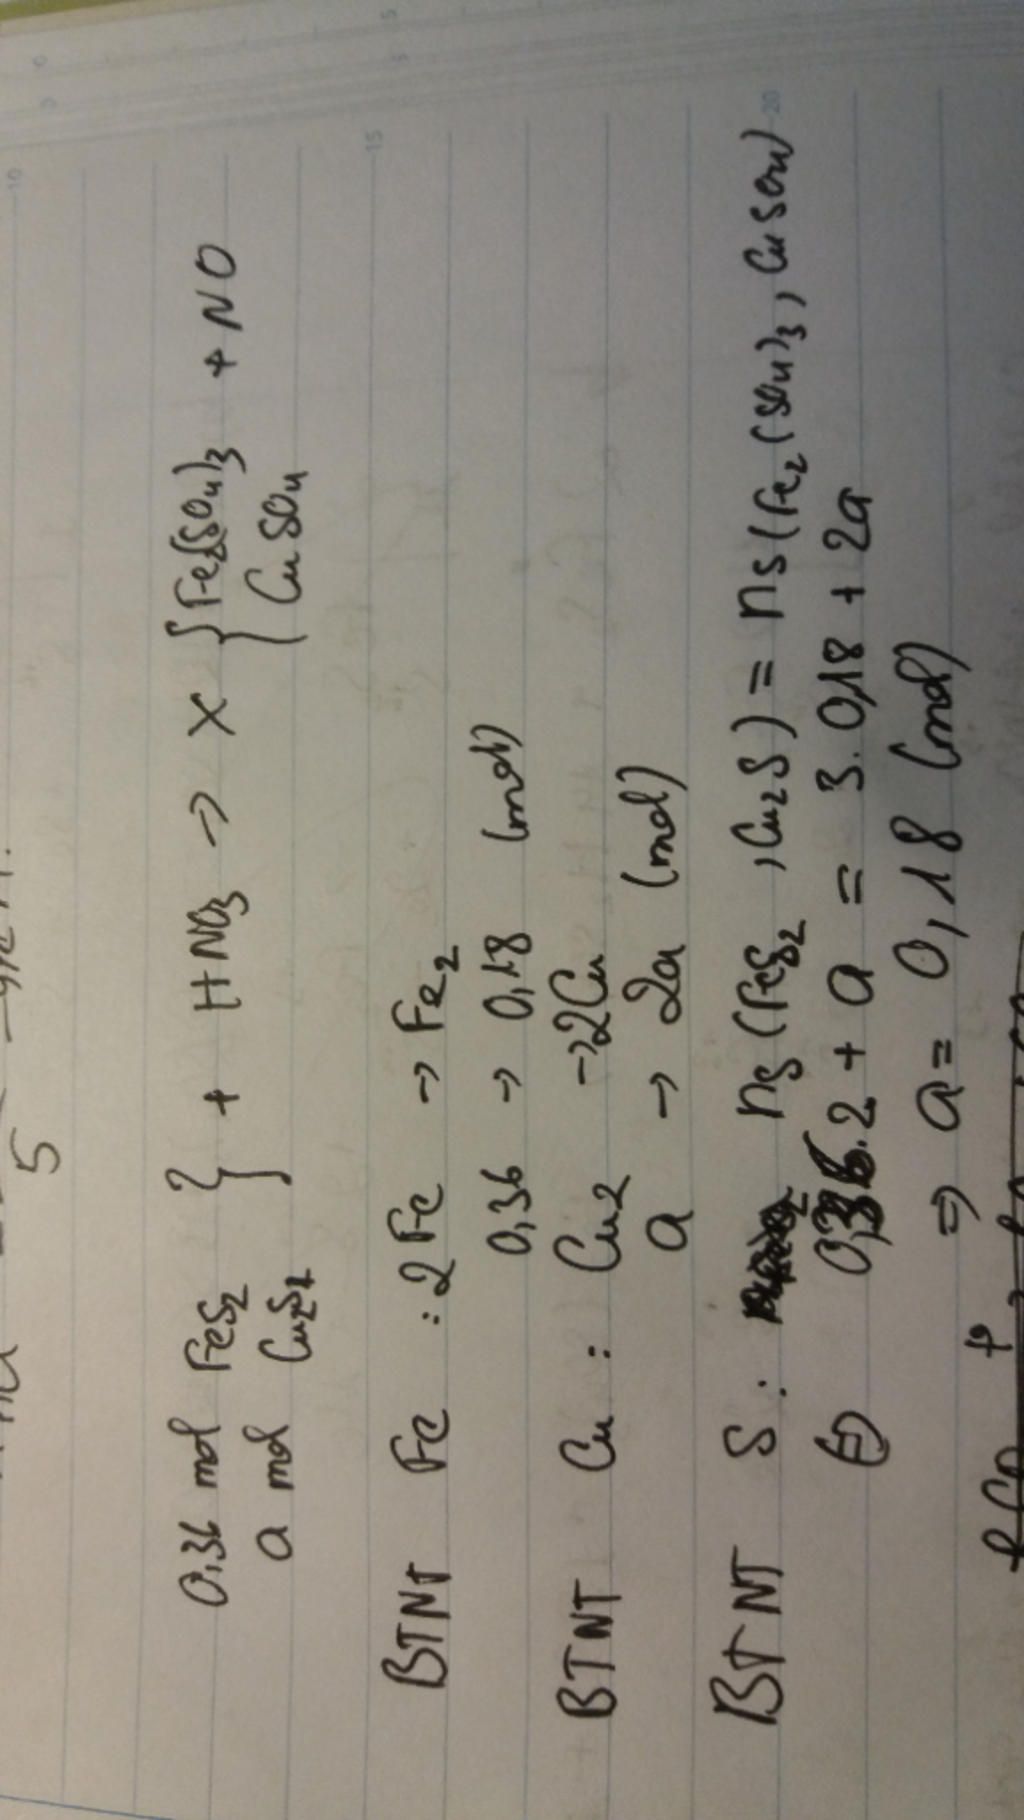 5
0,36 mol FeS2 } + HNO3 → X { Fe2(SO4)3 + NO
a mol Cu2S } { CuSO4
BTNT Fe : 2Fe → Fe2
0,36 → 0,18 (mol)
BTNT Cu : Cu2 → 2Cu
a → 2a (mol)
BTNT S : nS (FeS2, Cu2S) = nS (Fe2(SO4)3, CuSO4)
(=) 0,36.2 + a = 3.0,18 + 2a
⇒ a = 0,18 (mol)